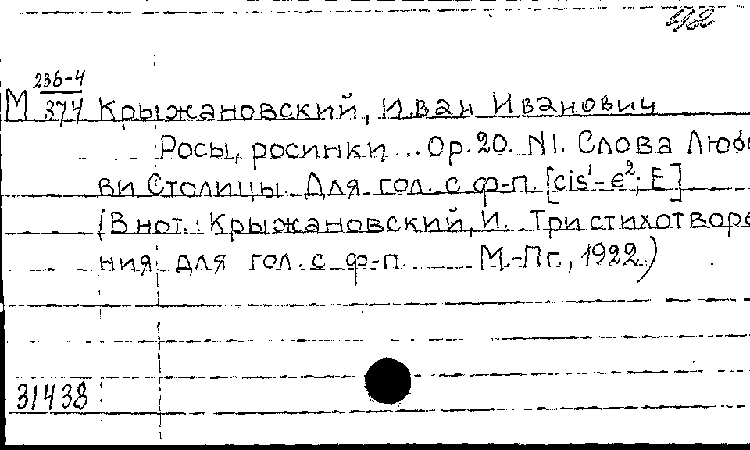 М 236-4/374 Крыжановский, Иван Иванович
Росы, росинки... Op. 20. N1. Слова Любо
ви Столицы. Для гол. с ф-п. [cis¹-e²; E]
(В нот.: Крыжановский, И. Три стихотворе
ния для гол. с ф-п. М.-Пг., 1922)
31438